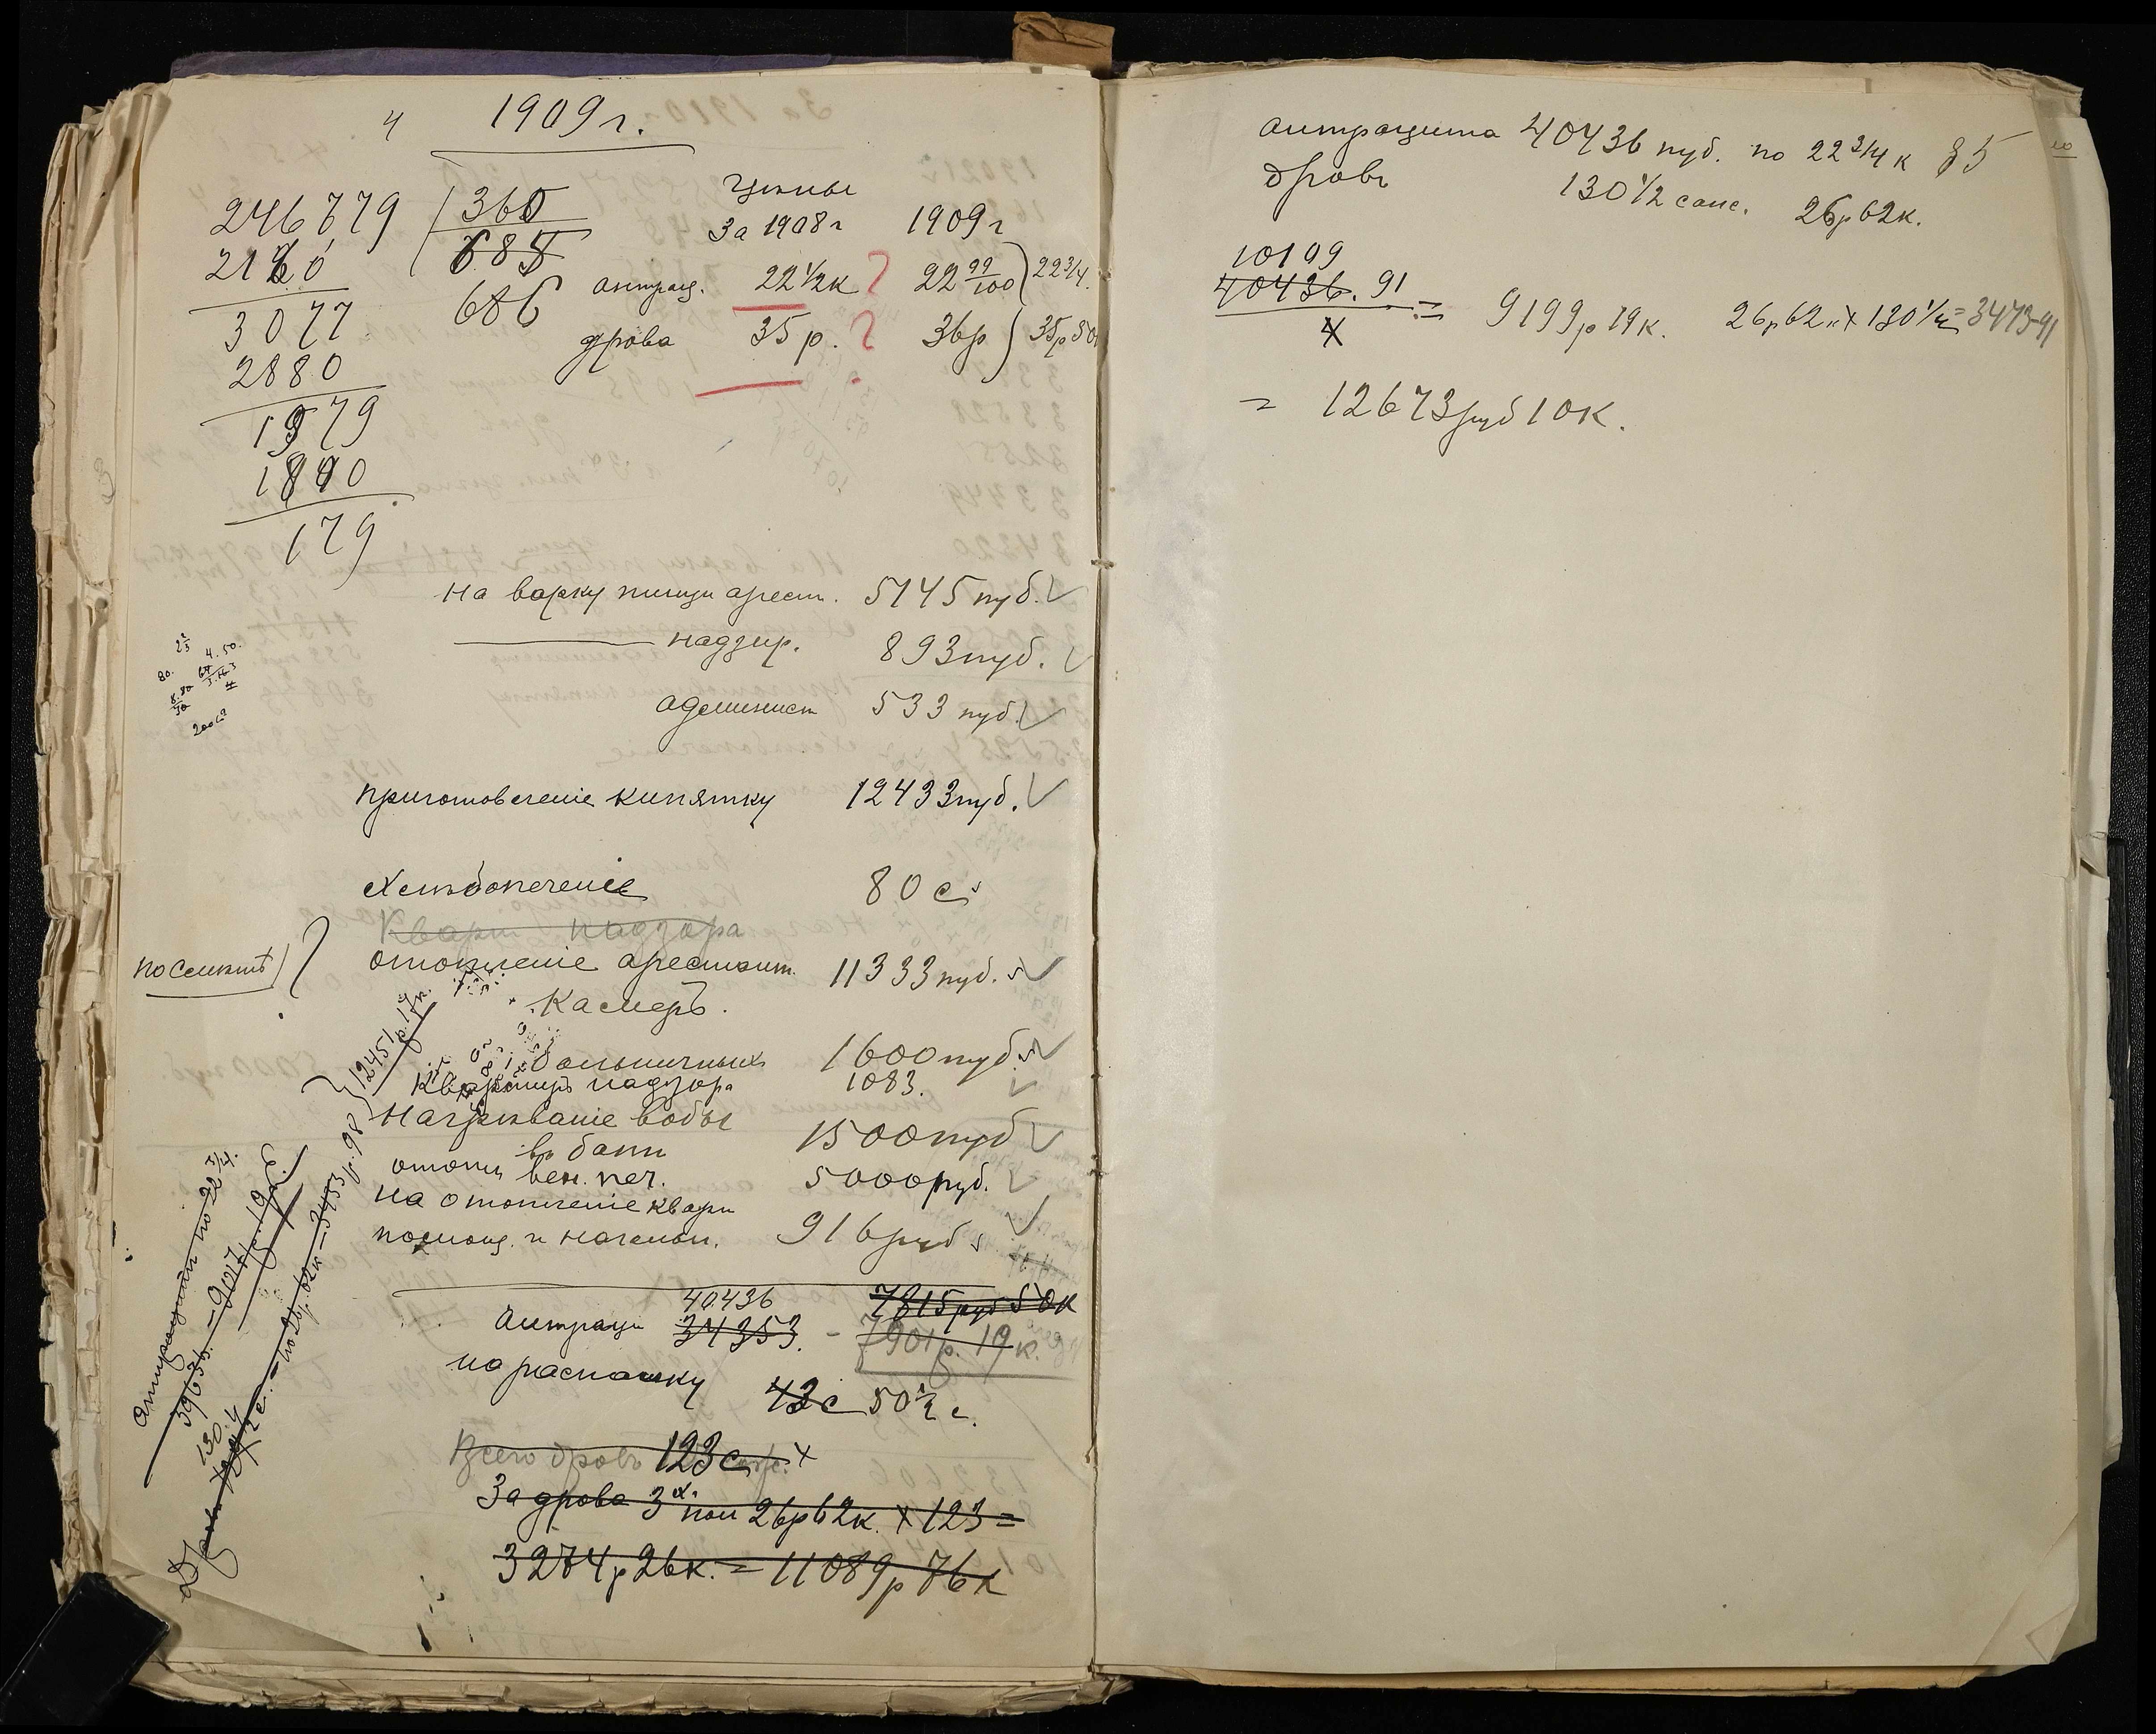 4 1909 г.
246779 360
2160 685
3077 686
2880
1979
1800
179
Цѣны
За 1908 г 1909 г
антрац. 22 1/2 к 22 99/100 22 3/4
дрова 35 р. 36 р 35 р 50
На варку пищи арест. 5145 пуд.
надзир. 893 пуд.
админист 533 пуд.
приготовленіе кипятку 12433 пуд.
Хлѣбопеченіе 80 с
Кварт надзора
по смѣтѣ
отопленіе арестант. 11333 пуд.
Камеръ.
больничныхъ 1600 пуд.
Квартиръ надзора 1083.
Нагрѣваніе воды
въ бани 1500 пуд
отопл вен. печ. 5000 пуд.
на отопленіе кварт
помощ. и начальн. 916 пуд
40.436 7815 руб 50 к
Антрац 34353. - 7901 р. 19 к.
на распалку 43 с 50 1/2 с.
Всего дровъ 123 с
За дрова 3х пол 26 р 62 к. х 123 =
3274 р 26 к. = 11089 р 76 к
12451 р. 17 к.
Антрацит по 22 3/4.
39636. — 9017 р. 19 к.
130.4
по 26 р. 62 к — 3453 р. 98
антрацита 40436 пуд. по 22 3/4 к 85
дровъ 130 1/2 саж. 26 р 62 к.
10109
40436. 91 = 9199 р 19 к. 26 р 62 к х 130 1/2 = 3473-91
4
= 12673 руб 10 к.